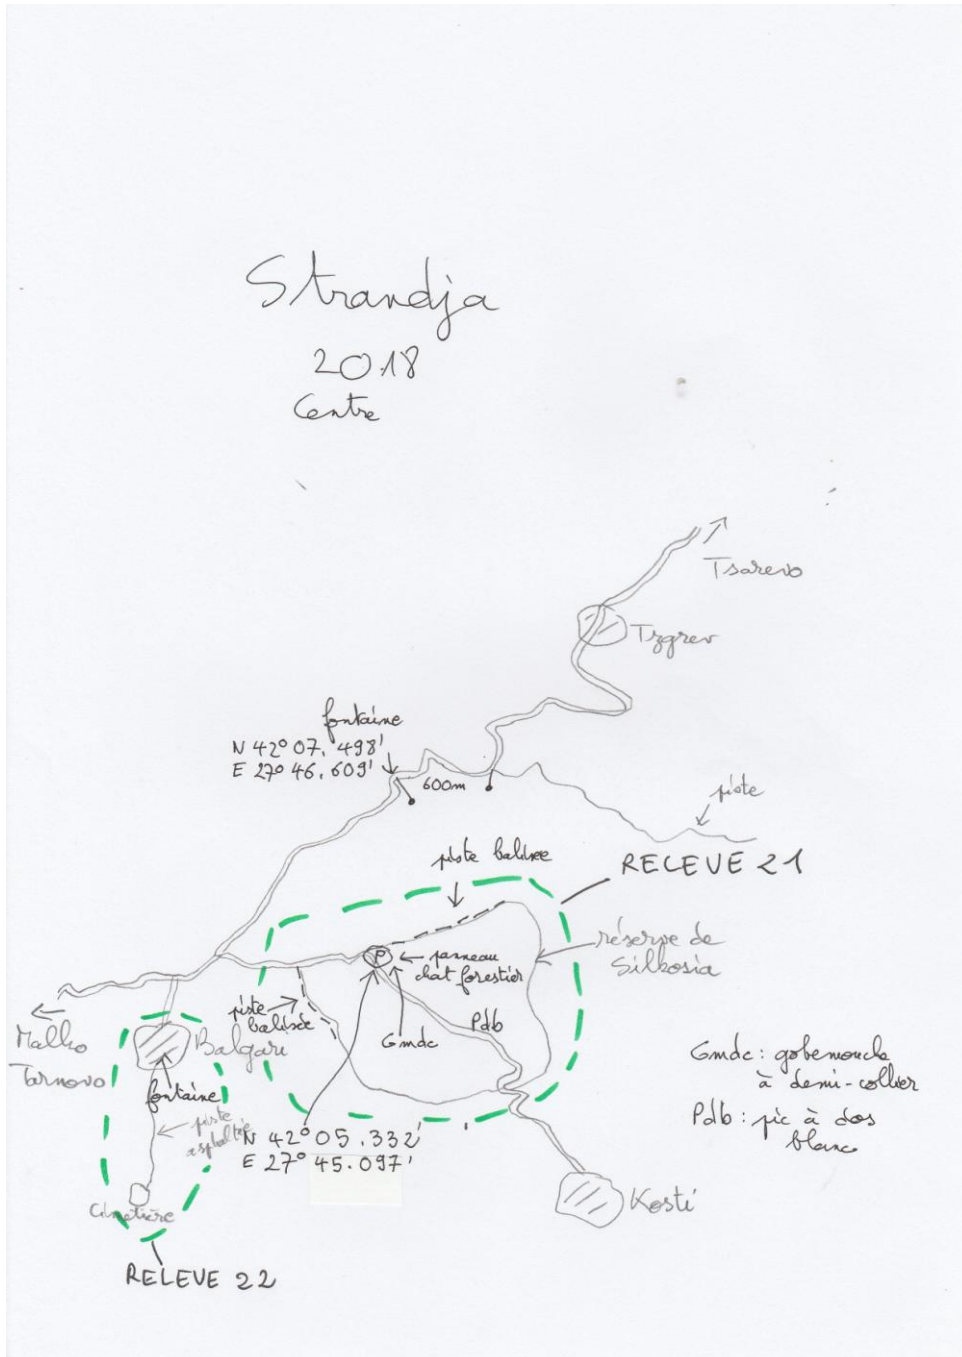 Strandja
2018
Centre
Tsarevo
Tzgrev
fontaine
N 42° 07.498'
E 27° 46.609'
600m
piste
piste balisée
RELEVE 21
réserve de
Silkosia
P
panneau
chat forestier
piste
balisée
Gmdc
Pdb
Malko
Tarnovo
Balgari
fontaine
piste
asphaltée
Cimetière
N 42° 05.332'
E 27° 45.097'
Gmdc : gobemouche
à demi-collier
Pdb : pic à dos
blanc
Kosti
RELEVE 22